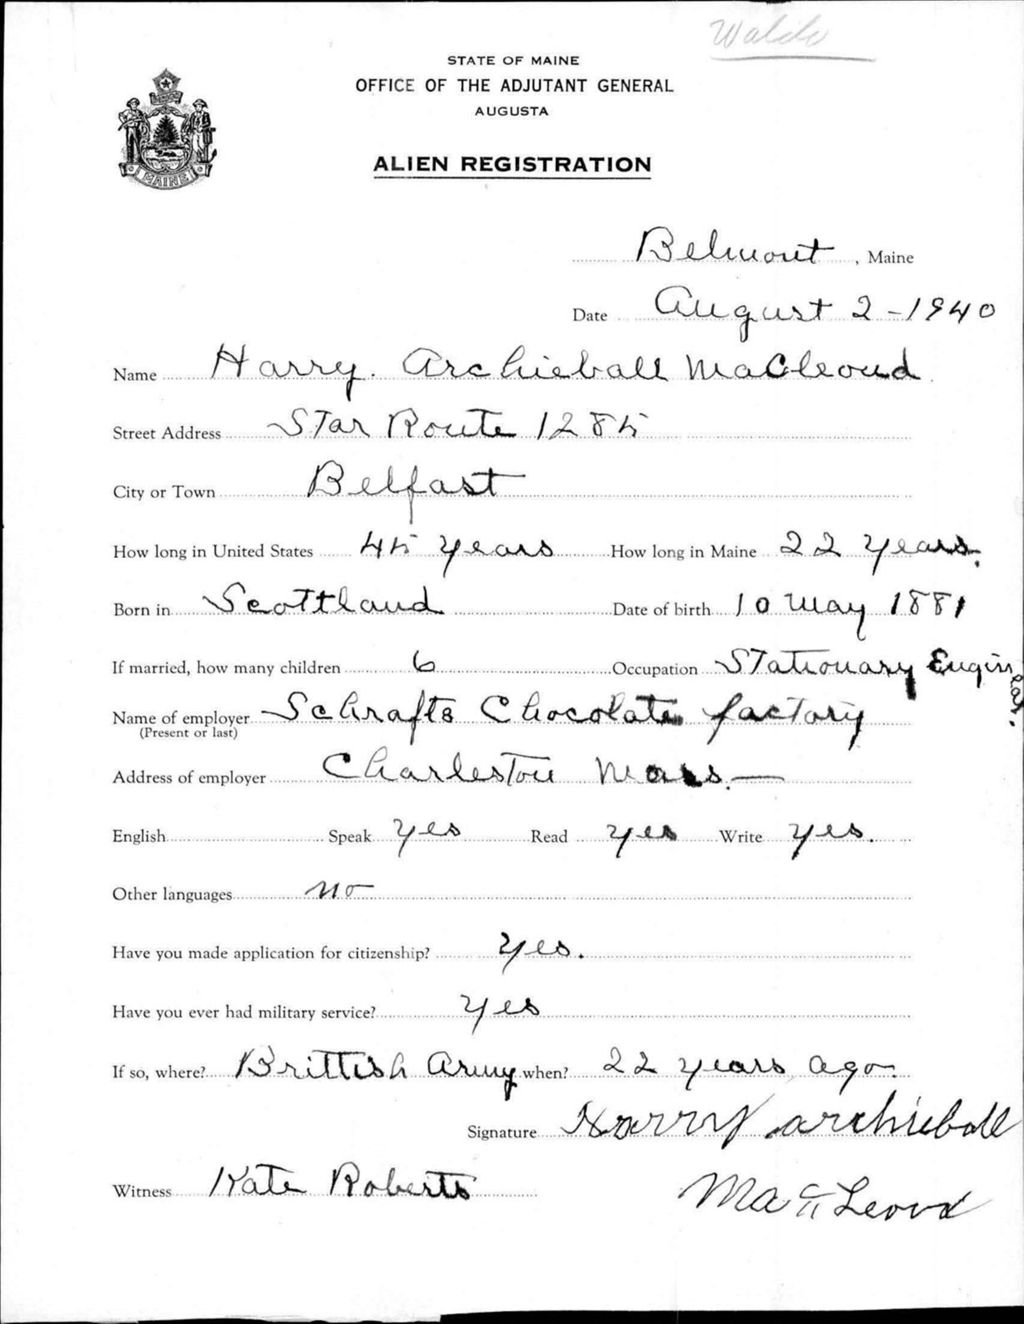 Waldo
STATE OF MAINE
OFFICE OF THE ADJUTANT GENERAL
AUGUSTA
ALIEN REGISTRATION
MAINE
Belmont, Maine
Date August 2-1940
Name Harry. Archieball MaCleoud
Street Address Star Route 1285
City or Town Belfast
How long in United States 45 years How long in Maine 22 years.
Born in Scottland Date of birth 10 May 1881
If married, how many children 6 Occupation Stationary Engineer.
Name of employer Schrafts Chocolate factory
(Present or last)
Address of employer Charleston Mass.—
English Speak yes Read yes Write yes.
Other languages no
Have you made application for citizenship? yes.
Have you ever had military service? yes
If so, where? Brittish Army when? 22 years ago.
Signature Harry archieball
Witness Kate Roberts MacLeoud